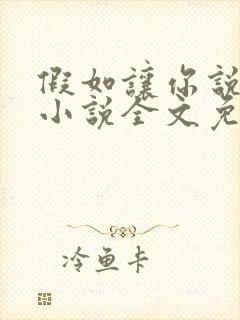 假如讓你說
小說全文免
冷魚卡